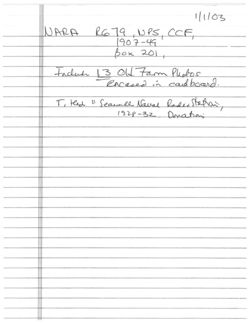 1/1/03
NARA RG 79, NPS, CCF,
1907-49
box 201,
Includes 13 Old Farm Photos
Encased in cardboard.
Naval Radio Station,
1928-32. Donation